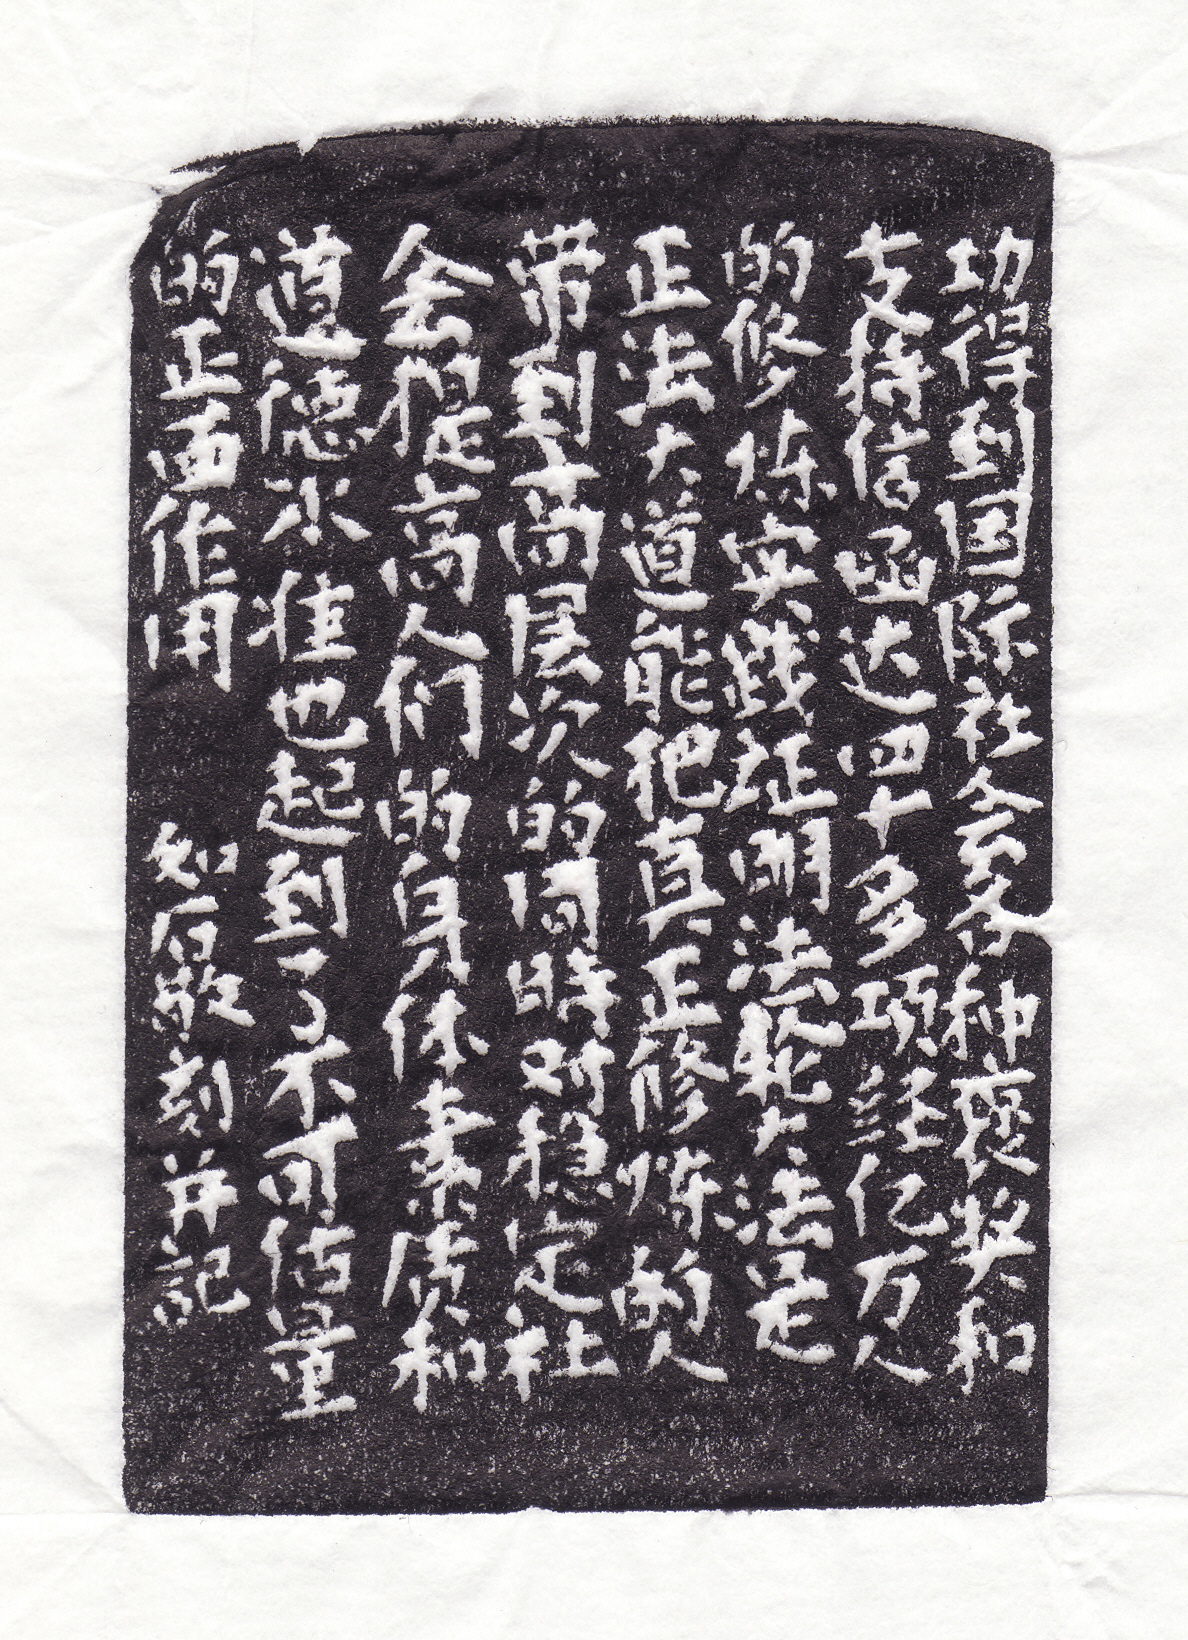 功得到国际社会各种褒奖和
支持信函达四十多项经亿万人
的修炼实践证明法轮大法是
正法大道能把真正修炼的人
带到高层次的同时对稳定社
会和提高人们的身体素质和
道德水准也起到了不可估量
的正面作用
知白敬刻并記